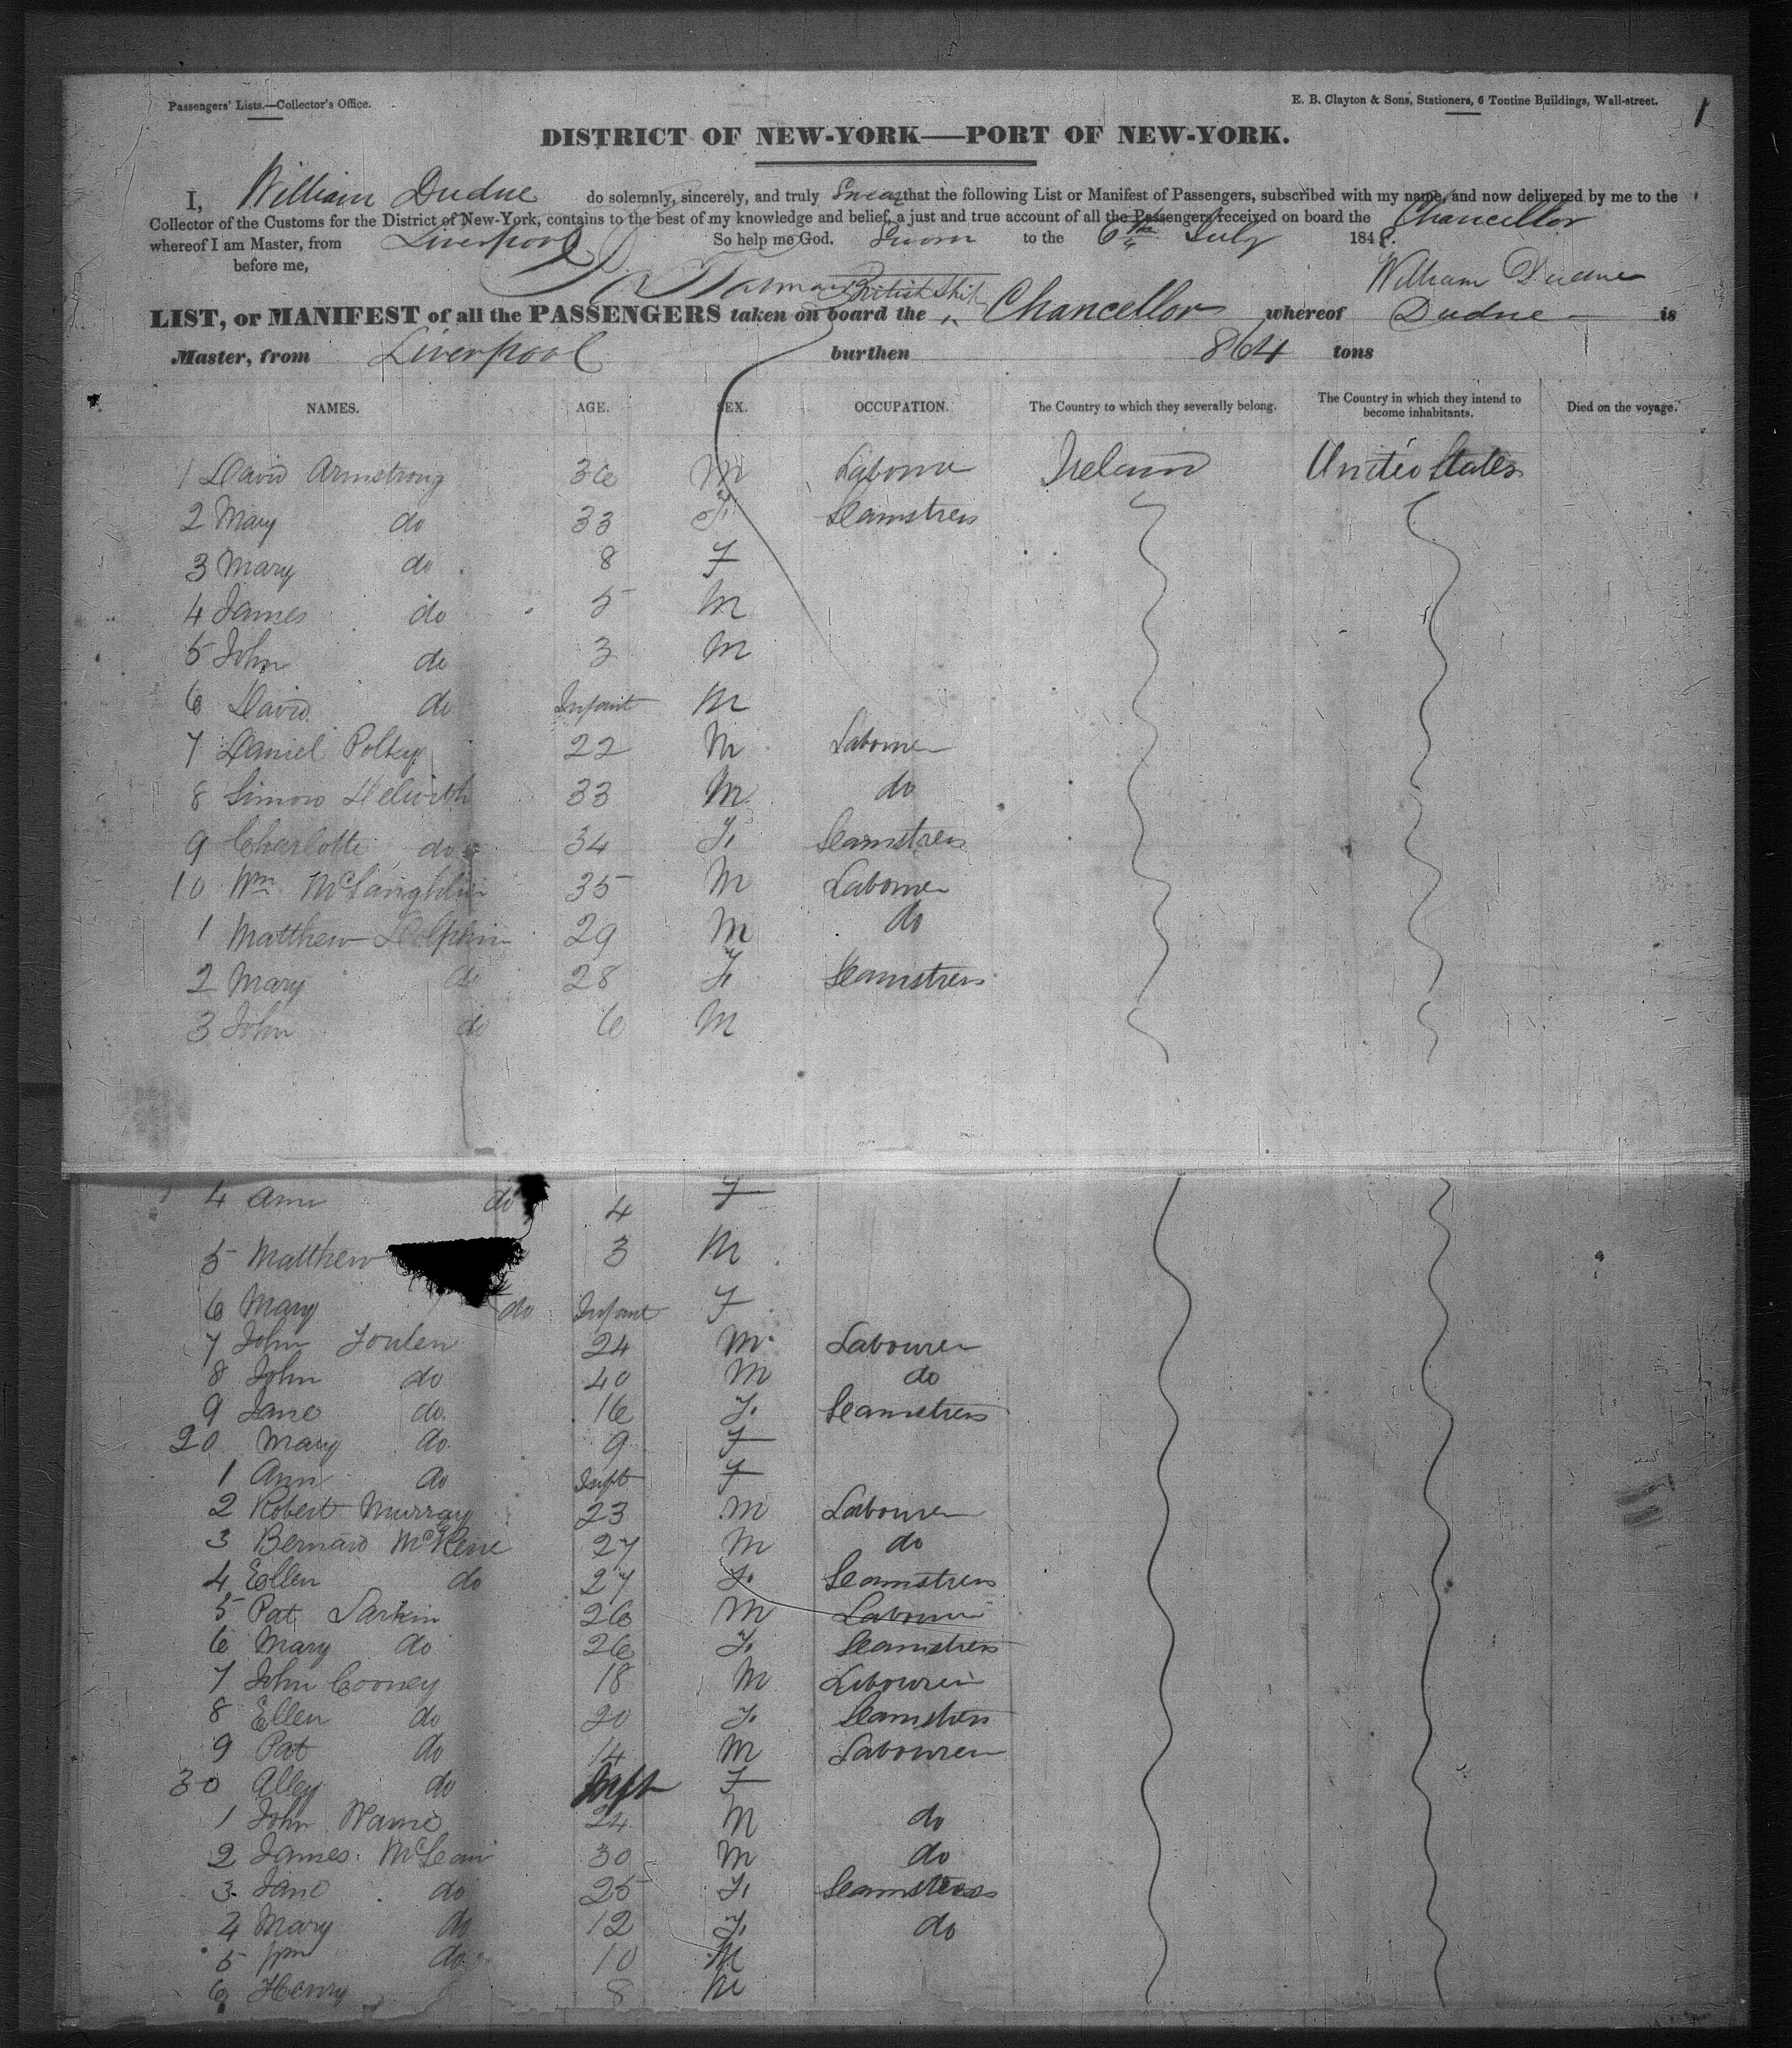 Passengers' Lists.—Collector's Office.
E. B. Clayton & Sons, Stationers, 6 Tontine Buildings, Wall-street.
1
DISTRICT OF NEW-YORK—PORT OF NEW-YORK.
I, William Dudne do solemnly, sincerely, and truly Swear that the following List or Manifest of Passengers, subscribed with my name, and now delivered by me to the
Collector of the Customs for the District of New-York, contains to the best of my knowledge and belief, a just and true account of all the Passengers received on board the Chancellor
whereof I am Master, from Liverpool So help me God. Sworn to the 6th July 1848.
before me, William Dudne
LIST, or MANIFEST of all the PASSENGERS taken on board the British Ship Chancellor whereof Dudne is
Master, from Liverpool burthen 864 tons
NAMES. AGE. SEX. OCCUPATION. The Country to which they severally belong. The Country in which they intend to become inhabitants. Died on the voyage.
1 David Armstrong 36 M Labourer Ireland United States
2 Mary do 33 F. Seamstress
3 Mary do 8 F
4 James do 5 M
5 John do 3 M
6 David do Infant M
7 Daniel 22 M Labourer
8 Simon 33 M do
9 Charlotte do 34 F. Seamstress
10 Wm McLaughlin 35 M Labourer
1 Matthew Dolphin 29 M do
2 Mary do 28 F. Seamstress
3 John do 6 M
4 Ann do 4 F
5 Matthew 3 M
6 Mary do Infant F
7 John 24 M Labourer
8 John do 40 M do
9 Jane do 16 F. Seamstress
20 Mary do 9 F
1 Ann do Inft F
2 Robert Murray 23 M Labourer
3 Bernard 27 M do
4 Ellen do 27 F. Seamstress
5 Pat Larkin 26 M Labourer
6 Mary do 26 F. Seamstress
7 John Cooney 18 M Labourer
8 Ellen do 20 F. Seamstress
9 Pat do 14 M Labourer
30 Alley do Inft F
1 John 24 M do
2 James McLean 30 M do
3 Jane do 25 F. Seamstress
4 Mary do 12 F. do
5 Wm do 10 M
6 Henry 8 M